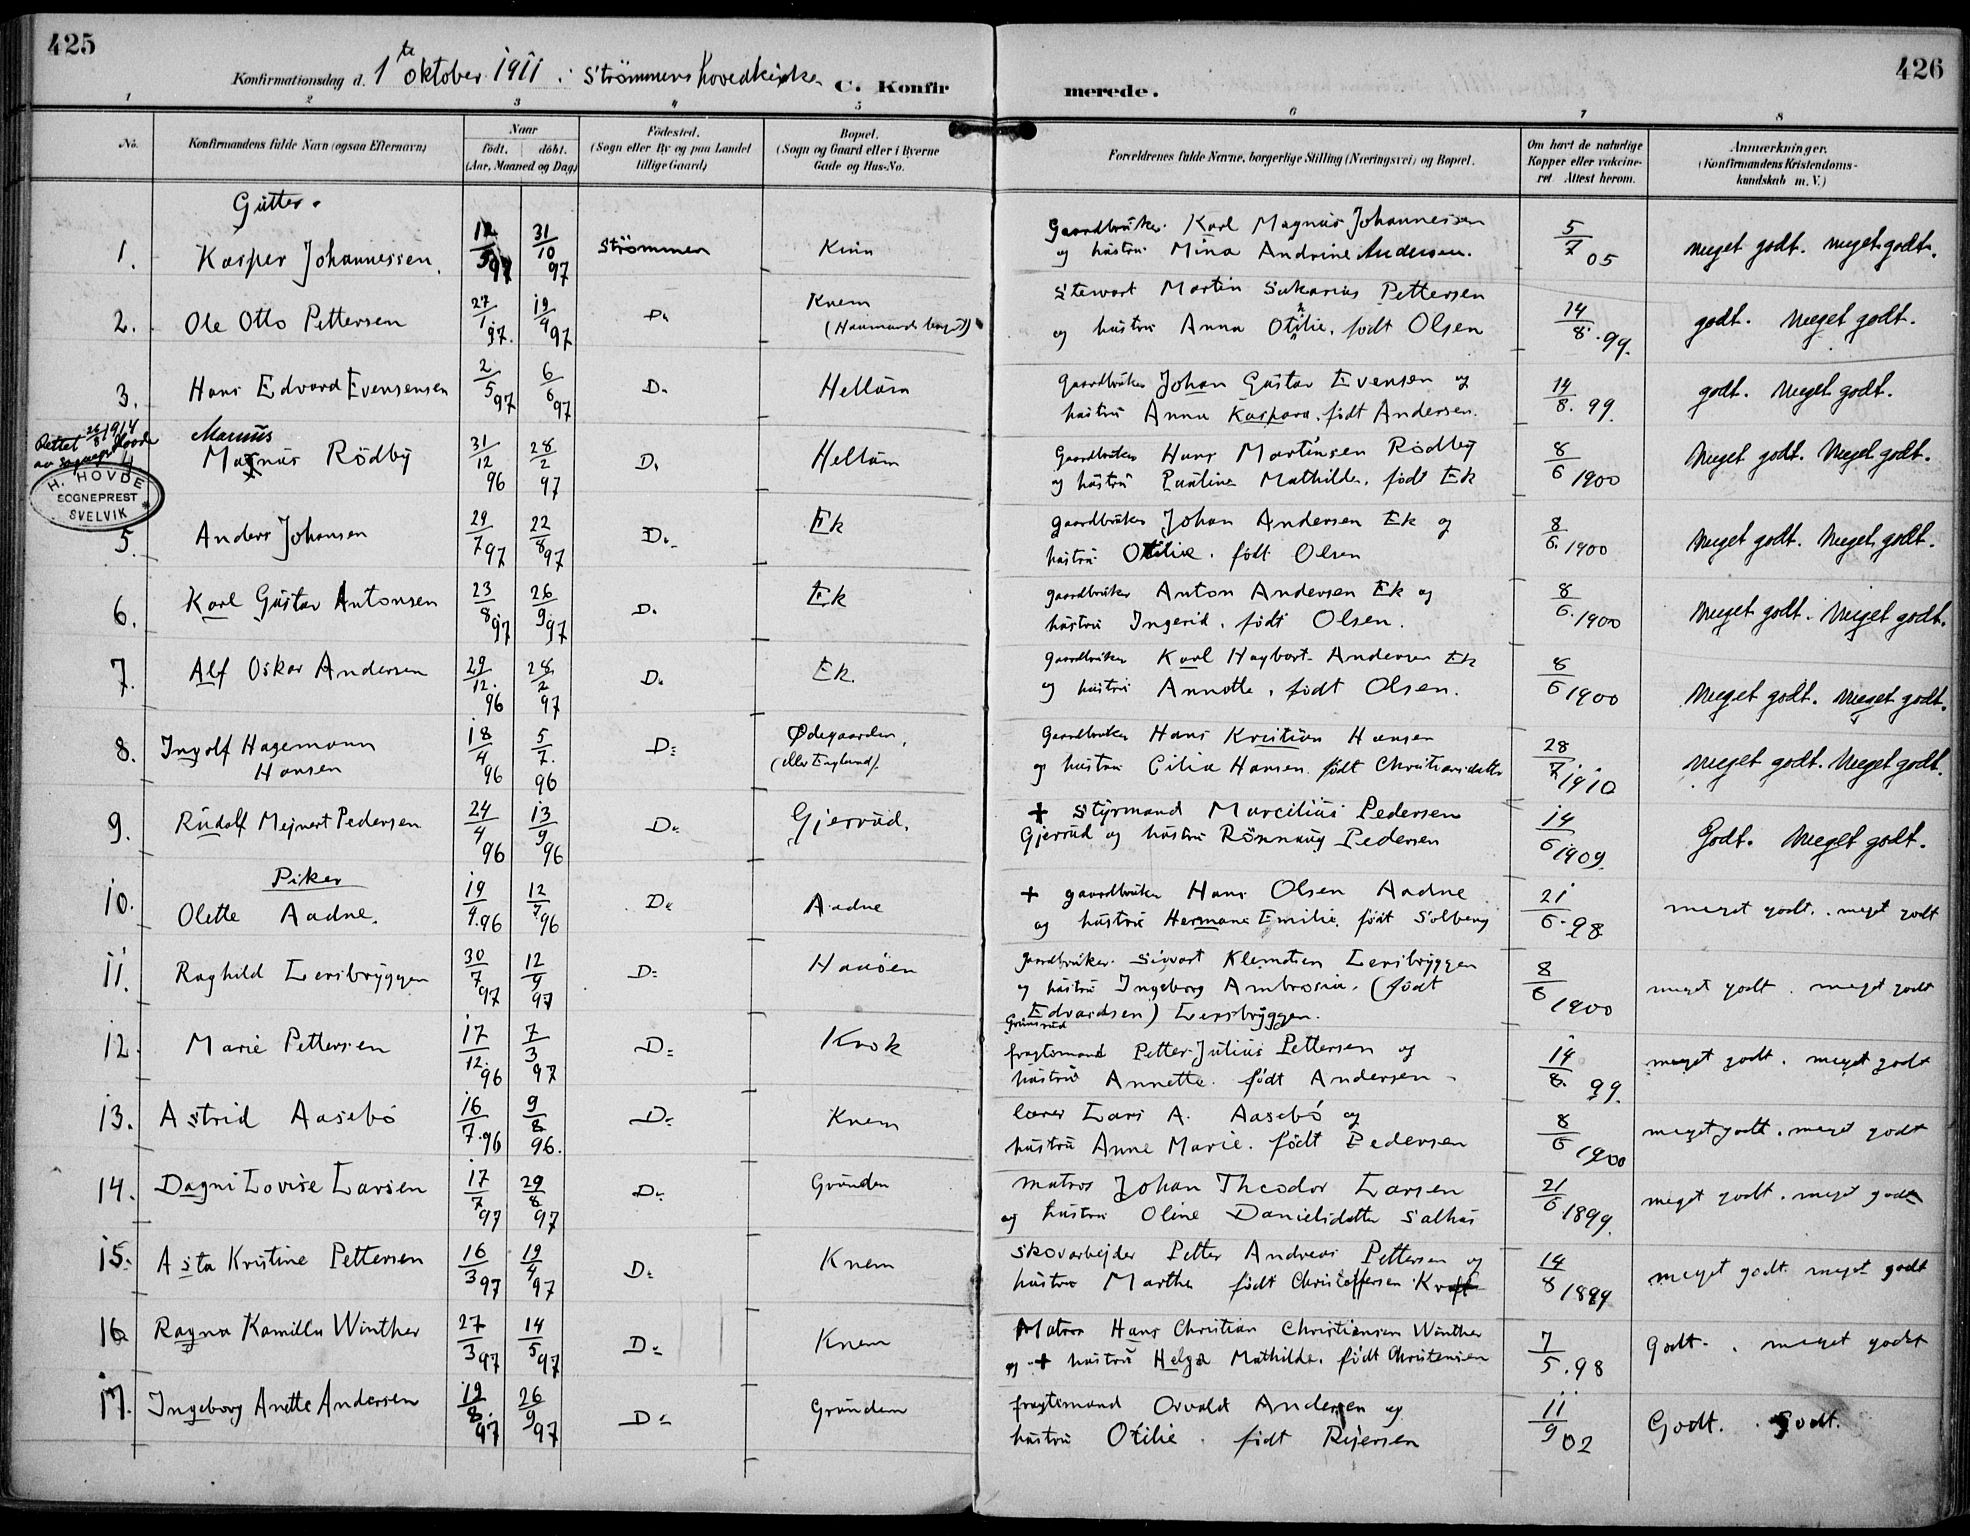 425
426
Konfirmationsdag d. 1te oktober 1911 i Strömmens hovedkirke
C. Konfir merede.
1 2 3 4 5 6 7 8
No. Konfirmandens fulde Navn (ogsaa Efternavn) Naar födt. döbt. (Aar, Maaned og Dag) Födested. (Sogn eller By og paa Landet tillige Gaard) Bopæl. (Sogn og Gaard eller i Byerne Gade og Hus-No. Forældrenes fulde Navne, borgerlige Stilling (Næringsvei) og Bopæl. Om havt de naturlige Kopper eller vakcineret Attest herom. Anmærkninger. (Konfirmandens Kristendomskundskab m. V.)
Gutter.
1. Kasper Johannessen. 12/5 97 31/10 97 Strömmen Knin Gaardbruker Karl Magnus Johannessen 5/7 05 meget godt. meget godt.
og hustru Mina Andrine Andersen.
2. Ole Otto Pettersen 27/1 97. 19/4 97 D. Knem Stewart Martin Sakarias Pettersen 14/8. 99. godt. meget godt.
og hustru Anna Otilie, født Olsen
3. Hans Edvard Evensensen 2/5 97 6/6 97 D. Hellum gaardbruker Johan Gustav Evensen og 14/8. 99. godt. Meget godt.
hustru Anna Kaspara, født Andersen.
Rettet 26/8 1914 Hovde
av sogneprest
H. HOVDE
SOGNEPREST
SVELVIK
Marius
4 Magnus Rödby 31/12 96 28/2 97 D. Hellum Gaardbruker Hans Martinsen Rödby 8/6 1900 Meget godt. Meget godt.
og hustru Pauline Mathilde, født Ek
5. Anders Johansen 29/7 97 22/8 97 D. Ek gaardbruker Johan Andersen Ek og 8/6. 1900 Meget godt. Meget godt.
hustru Otilie. født Olsen
6. Karl Gustav Antonsen 23/8 97 26/9 97 D. Ek gaardbruker Anton Andersen Ek og 8/6. 1900 Meget godt. Meget godt.
hustru Ingerid, født Olsen.
7. Alf Oskar Andersen 29/12. 96 28/2 97 D. Ek. gaardbruker Karl Haybart Andersen Ek 8/6 1900 Meget godt. Meget godt.
og hustru Annette, født Olsen.
8. Ingolf Hagemann 18/4 96 5/7. 96 D: Ødegaarden, Gaardbruker Hans Kristian Hansen 28/7 1910 Meget godt. Meget godt.
Hansen (eller Englund). og hustru Cilia Hansen født Christiansdatter
9. Rudolf Mejnert Pedersen 24/4 96 13/9 96 D: Gjerrud. + Styrmand Marcilius Pedersen 14/6 1909. Godt. Meget godt.
Gjerrud og hustru Rönnaug Pedersen
Piker
10. Olette Aadne. 19/4. 96 12/7 96 D: Aadne + gaardbruker Hans Olsen Aadne 21/6. 98 meget godt. meget godt
og hustru Hermane Emilie, født Solberg
11. Raghild Lersbryggen 30/7 97 12/9 97 D: Haaöen gaardbruker. Sivart Klemetsen Lersbryggen 8/6 1900 meget godt. meget godt
og hustru Ingeborg Ambrosia. (født
Edvardsen) Lersbryggen.
12. Marie Pettersen 17/12. 96 7/3 97 D: Krok fragtemand Petter Julius Pettersen og 14/8. 99. meget godt. meget godt
hustru Annette. født Andersen
13. Astrid Aasebö 16/7. 96 9/8 96. D: Knem lærer Lars A. Aasebö og 8/6 1900 meget godt. meget godt
hustru Anne Marie. født Pedersen
14. Dagni Lovise Larsen 17/7 97 29/8 97 D: Grunden matros Johan Theodor Larsen 21/6 1899. meget godt. meget godt
og hustru Oline Danielsdatter Salhus
15. Asta Kristine Pettersen 16/3 97 19/4 97 D: Knem skovarbejder Petter Andreas Pettersen og 14/8 1899 meget godt. meget godt
hustru Marthe født Christoffersen
16 Ragna Kamilla Winther 27/3 97 14/5 97 D: Knem Matros Hans Christian Christiansen Winther 7/5. 98 Godt. meget godt
og + hustru Helga Mathilde. født Christensen
17. Ingeborg Anette Andersen 19/8. 97 26/9 97 D: Grunden fragtemand Osvald Andersen og 11/9 02 Godt. Godt.
hustru Otilie. født Rejersen